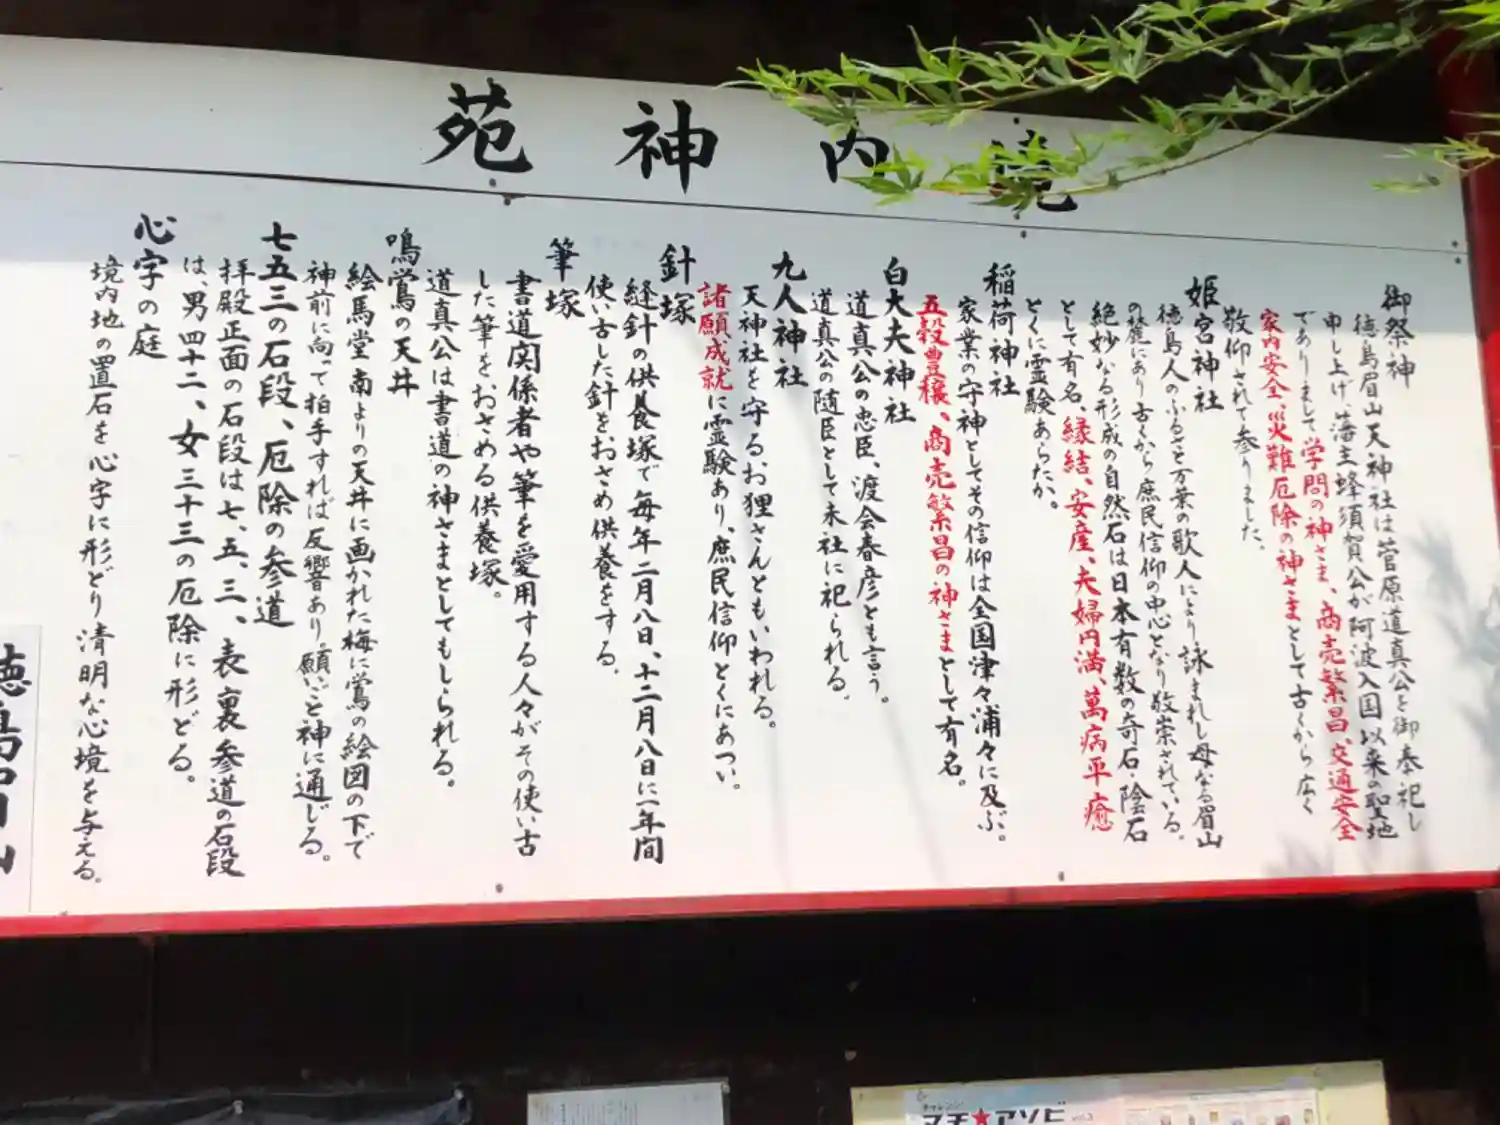 境内神苑
御祭神
徳島眉山天神社は菅原道真公を御奉祀し
申し上げ、藩主蜂須賀公が阿波入国以来の聖地
でありまして学問の神さま、商売繁昌、交通安全
家内安全、災難厄除の神さまとして古くから広く
敬仰されて参りました。
姫宮神社
徳島人のふるさと万葉の歌人により詠まれし母なる眉山
の麓にあり古くから庶民信仰の中心となり敬崇されている。
絶妙なる形成の自然石は日本有数の奇石・陰石
として有名、縁結、安産、夫婦円満、萬病平癒
とくに霊験あらたか。
稲荷神社
家業の守神としてその信仰は全国津々浦々に及ぶ。
五穀豊穣、商売繁昌の神さまとして有名。
白大夫神社
道真公の忠臣、渡会春彦とも言う。
道真公の随臣として末社に祀られる。
九人神社
天神社を守るお狸さんともいわれる。
諸願成就に霊験あり、庶民信仰とくにあつい。
針塚
縫針の供養塚で毎年二月八日、十二月八日に一年間
使い古した針をおさめ供養をする。
筆塚
書道関係者や筆を愛用する人々がその使い古
した筆をおさめる供養塚。
道真公は書道の神さまとしてもしられる。
鳴鴬の天井
絵馬堂南よりの天井に画かれた梅に鴬の絵図の下で
神前に向って拍手すれば反響あり。願いごと神に通じる。
七五三の石段、厄除の参道
拝殿正面の石段は七、五、三、表裏参道の石段
は、男四十二、女三十三の厄除に形どる。
心字の庭
境内地の置石を心字に形どり清明な心境を与える。
マチ★アソビ